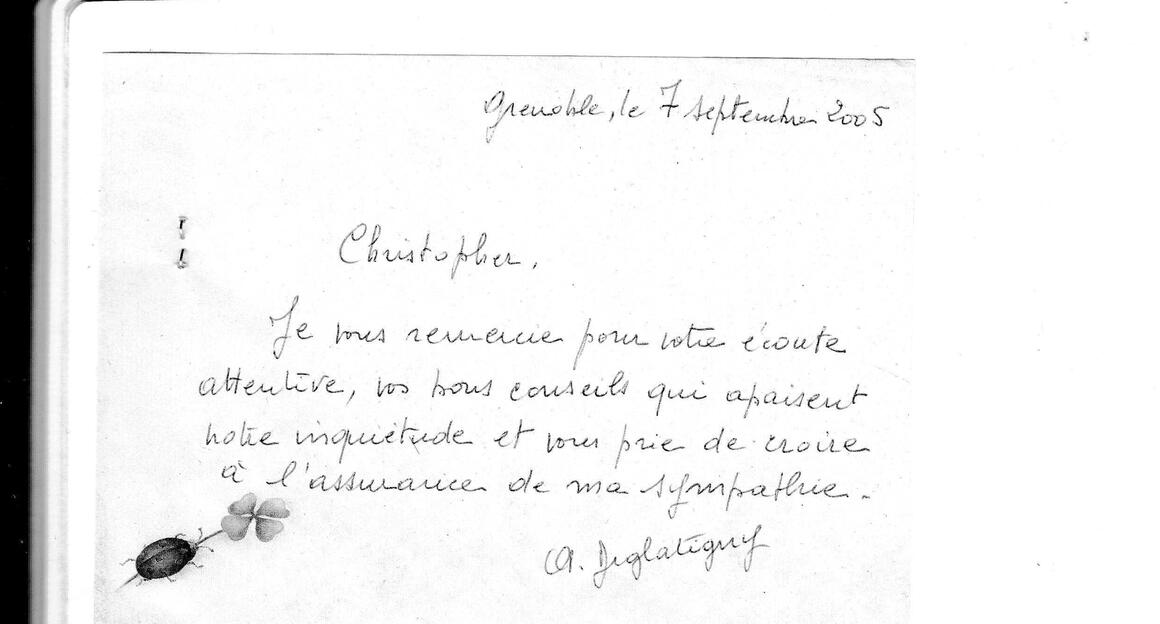 Grenoble, le 7 septembre 2005
Christopher,
Je vous remercie pour votre écoute
attentive, vos bons conseils qui apaisent
notre inquiétude et vous prie de croire
à l'assurance de ma sympathie.
A. Deglatigny